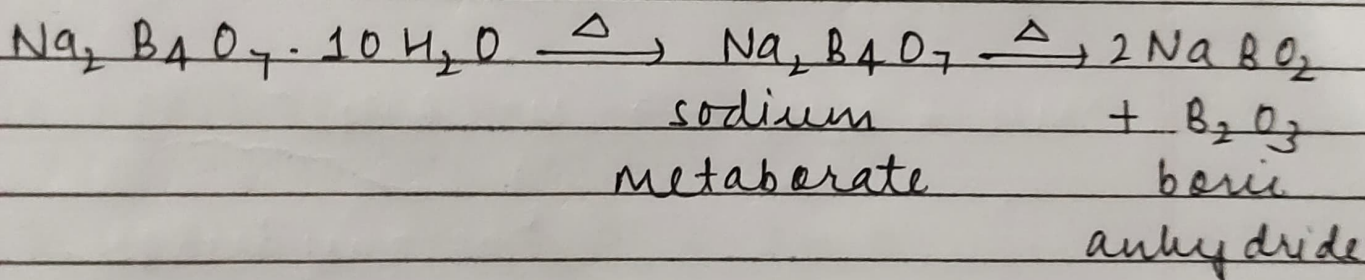 Na₂ B₄ O₇ . 10 H₂O —Δ→ Na₂ B₄ O₇ —Δ→ 2 Na B O₂
sodium + B₂ O₃
metaborate boric
anhydride